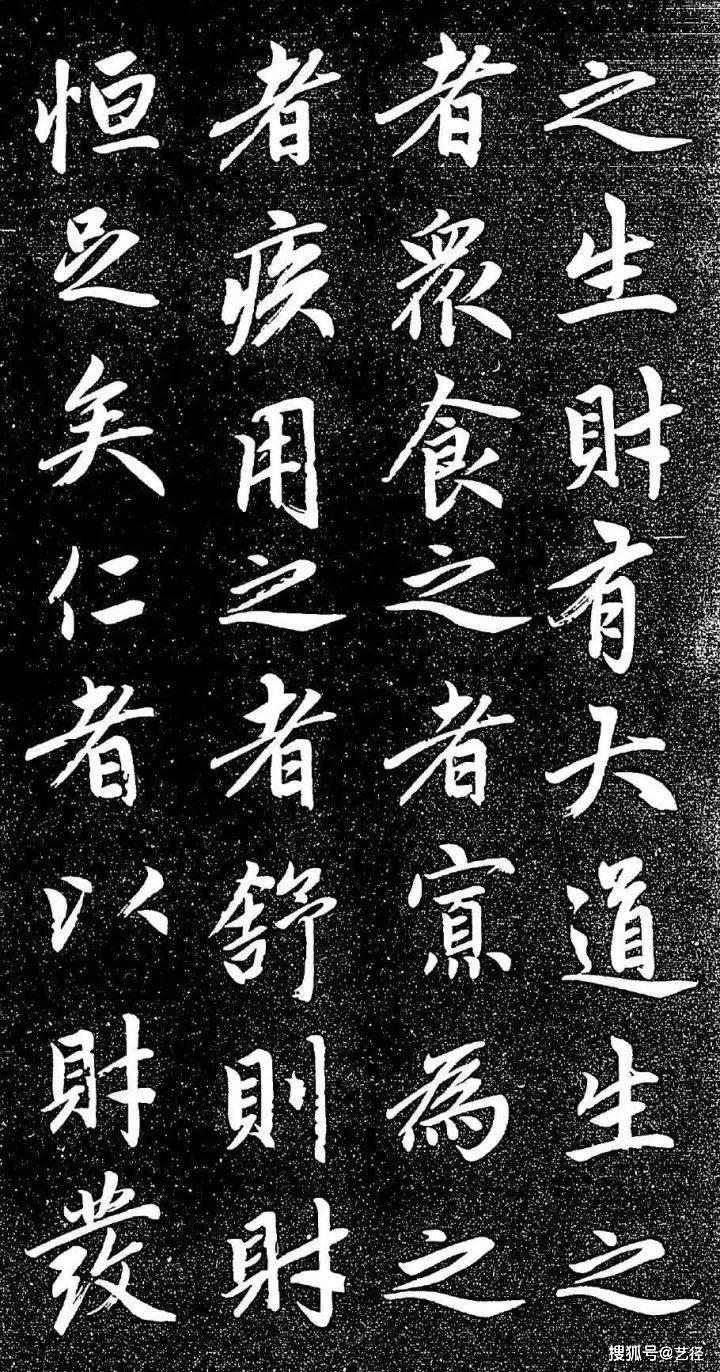 之生財有大道生之
者衆食之者寡為之
者疾用之者舒則財
恒足矣仁者以財發
搜狐号@艺径